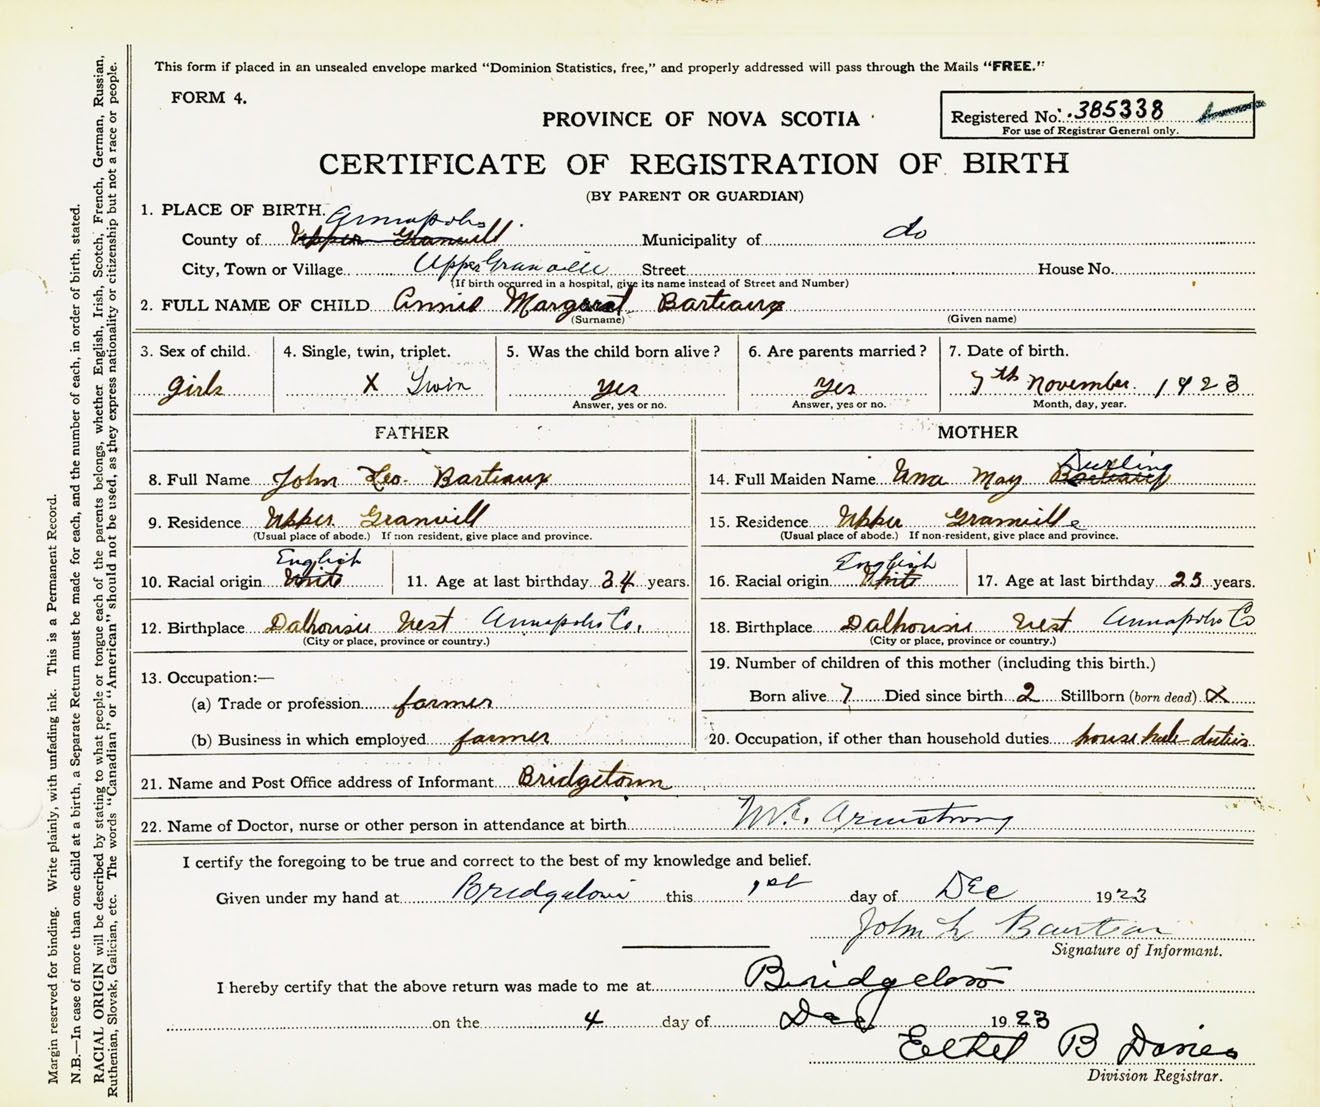 This form if placed in an unsealed envelope marked "Dominion Statistics, free," and properly addressed will pass through the Mails "FREE."
FORM 4.
PROVINCE OF NOVA SCOTIA
Registered No. 385338
For use of Registrar General only.
CERTIFICATE OF REGISTRATION OF BIRTH
(BY PARENT OR GUARDIAN)
1. PLACE OF BIRTH.
Annapolis
County of Upper Granvill Municipality of do
City, Town or Village Upper Granville Street House No.
(If birth occurred in a hospital, give its name instead of Street and Number)
2. FULL NAME OF CHILD Annie Margaret Barteaux
(Surname) (Given name)
3. Sex of child. 4. Single, twin, triplet. 5. Was the child born alive? 6. Are parents married? 7. Date of birth.
girls X Twin yes yes 7th November 1923
Answer, yes or no. Answer, yes or no. Month, day, year.
FATHER MOTHER
Durling
8. Full Name John Leo Barteaux 14. Full Maiden Name Una May Barteaux
9. Residence Upper Granvill 15. Residence Upper Granville
(Usual place of abode.) If non resident, give place and province. (Usual place of abode.) If non-resident, give place and province.
English English
10. Racial origin White 11. Age at last birthday 34 years. 16. Racial origin White 17. Age at last birthday 25 years.
12. Birthplace Dalhousie West Annapolis Co. 18. Birthplace Dalhousie West Annapolis Co
(City or place, province or country.) (City or place, province or country.)
13. Occupation:— 19. Number of children of this mother (including this birth.)
(a) Trade or profession farmer Born alive 7 Died since birth 2 Stillborn (born dead) X
(b) Business in which employed farmer 20. Occupation, if other than household duties house hule duties
21. Name and Post Office address of Informant Bridgetown
22. Name of Doctor, nurse or other person in attendance at birth M.E. Armstrong
I certify the foregoing to be true and correct to the best of my knowledge and belief.
Given under my hand at Bridgetown this 1st day of Dec 1923
John L Barteau
Signature of Informant.
I hereby certify that the above return was made to me at Bridgetown
on the 4 day of Dec 1923
Eethel B Davies
Division Registrar.
Margin reserved for binding. Write plainly, with unfading ink. This is a Permanent Record.
N.B.—In case of more than one child at a birth, a Separate Return must be made for each, and the number of each, in order of birth, stated.
RACIAL ORIGIN will be described by stating to what people or tongue each of the parents belongs, whether English, Irish, Scotch, French, German, Russian,
Ruthenian, Slovak, Galician, etc. The words "Canadian" or "American" should not be used, as they express nationality or citizenship but not a race or people.